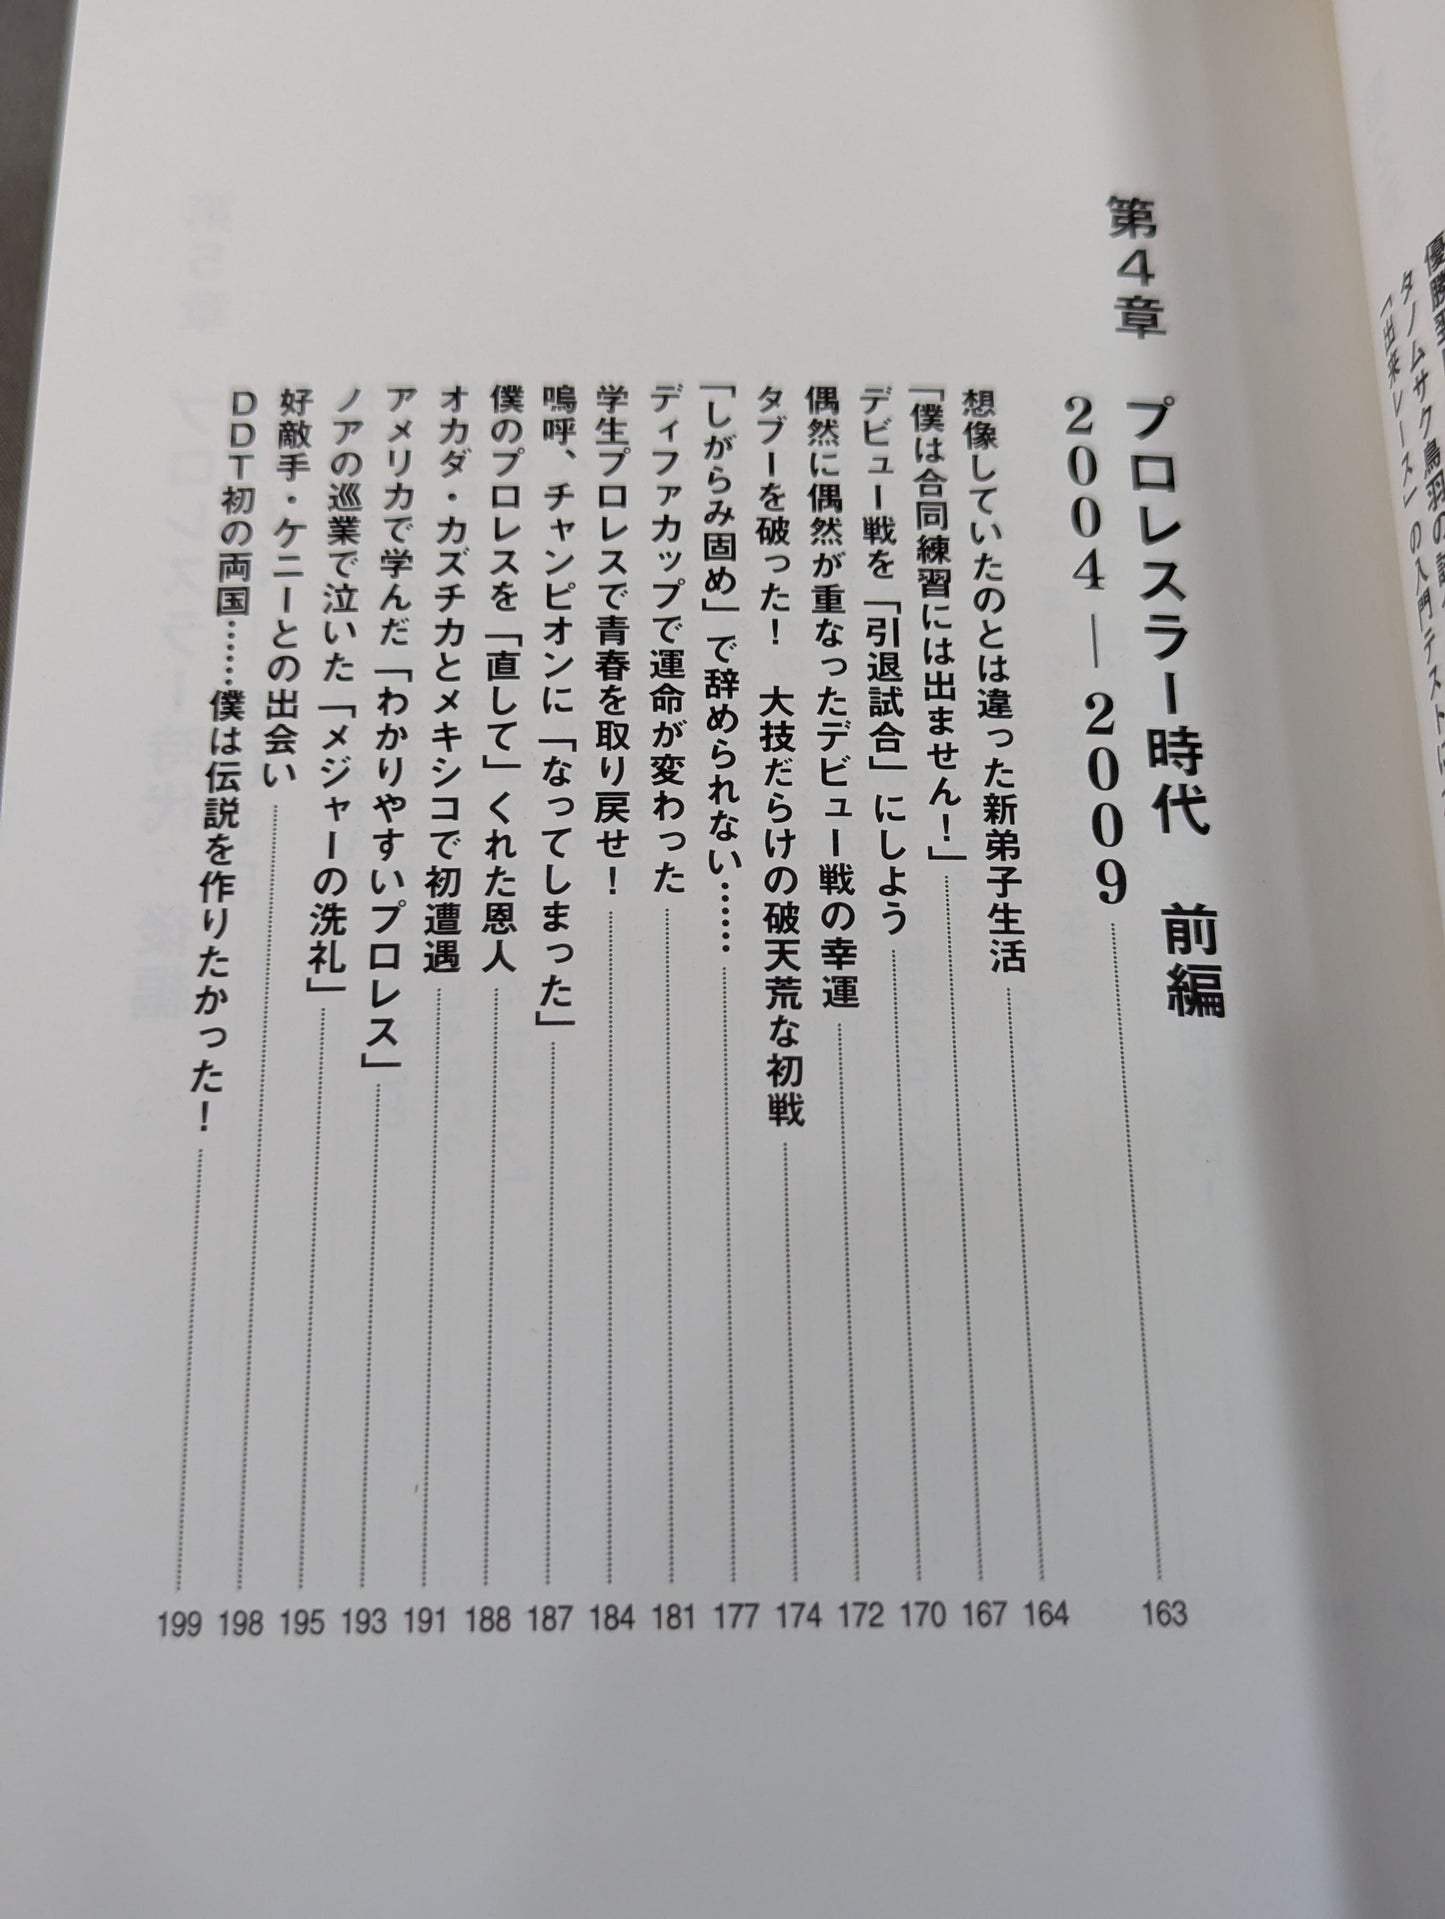 優勝
タノムサク鳥羽の
「出来レース」の入門テスト
第4章 プロレスラー時代 前編
2004―2009 163
想像していたのとは違った新弟子生活 164
「僕は合同練習には出ません！」 167
デビュー戦を「引退試合」にしよう 170
偶然に偶然が重なったデビュー戦の幸運 172
タブーを破った！ 大技だらけの破天荒な初戦 174
「しがらみ固め」で辞められない…… 177
ディファカップで運命が変わった 181
学生プロレスで青春を取り戻せ！ 184
嗚呼、チャンピオンに「なってしまった」 187
僕のプロレスを「直して」くれた恩人 188
オカダ・カズチカとメキシコで初遭遇 191
アメリカで学んだ「わかりやすいプロレス」 193
ノアの巡業で泣いた「メジャーの洗礼」 195
好敵手・ケニーとの出会い 198
DDT初の両国……僕は伝説を作りたかった！ 199